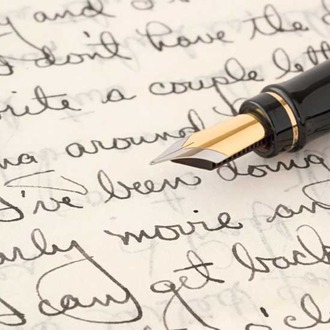 y and
don't have the
write a couple lett
around
I've been doing
early movie an
I can get back